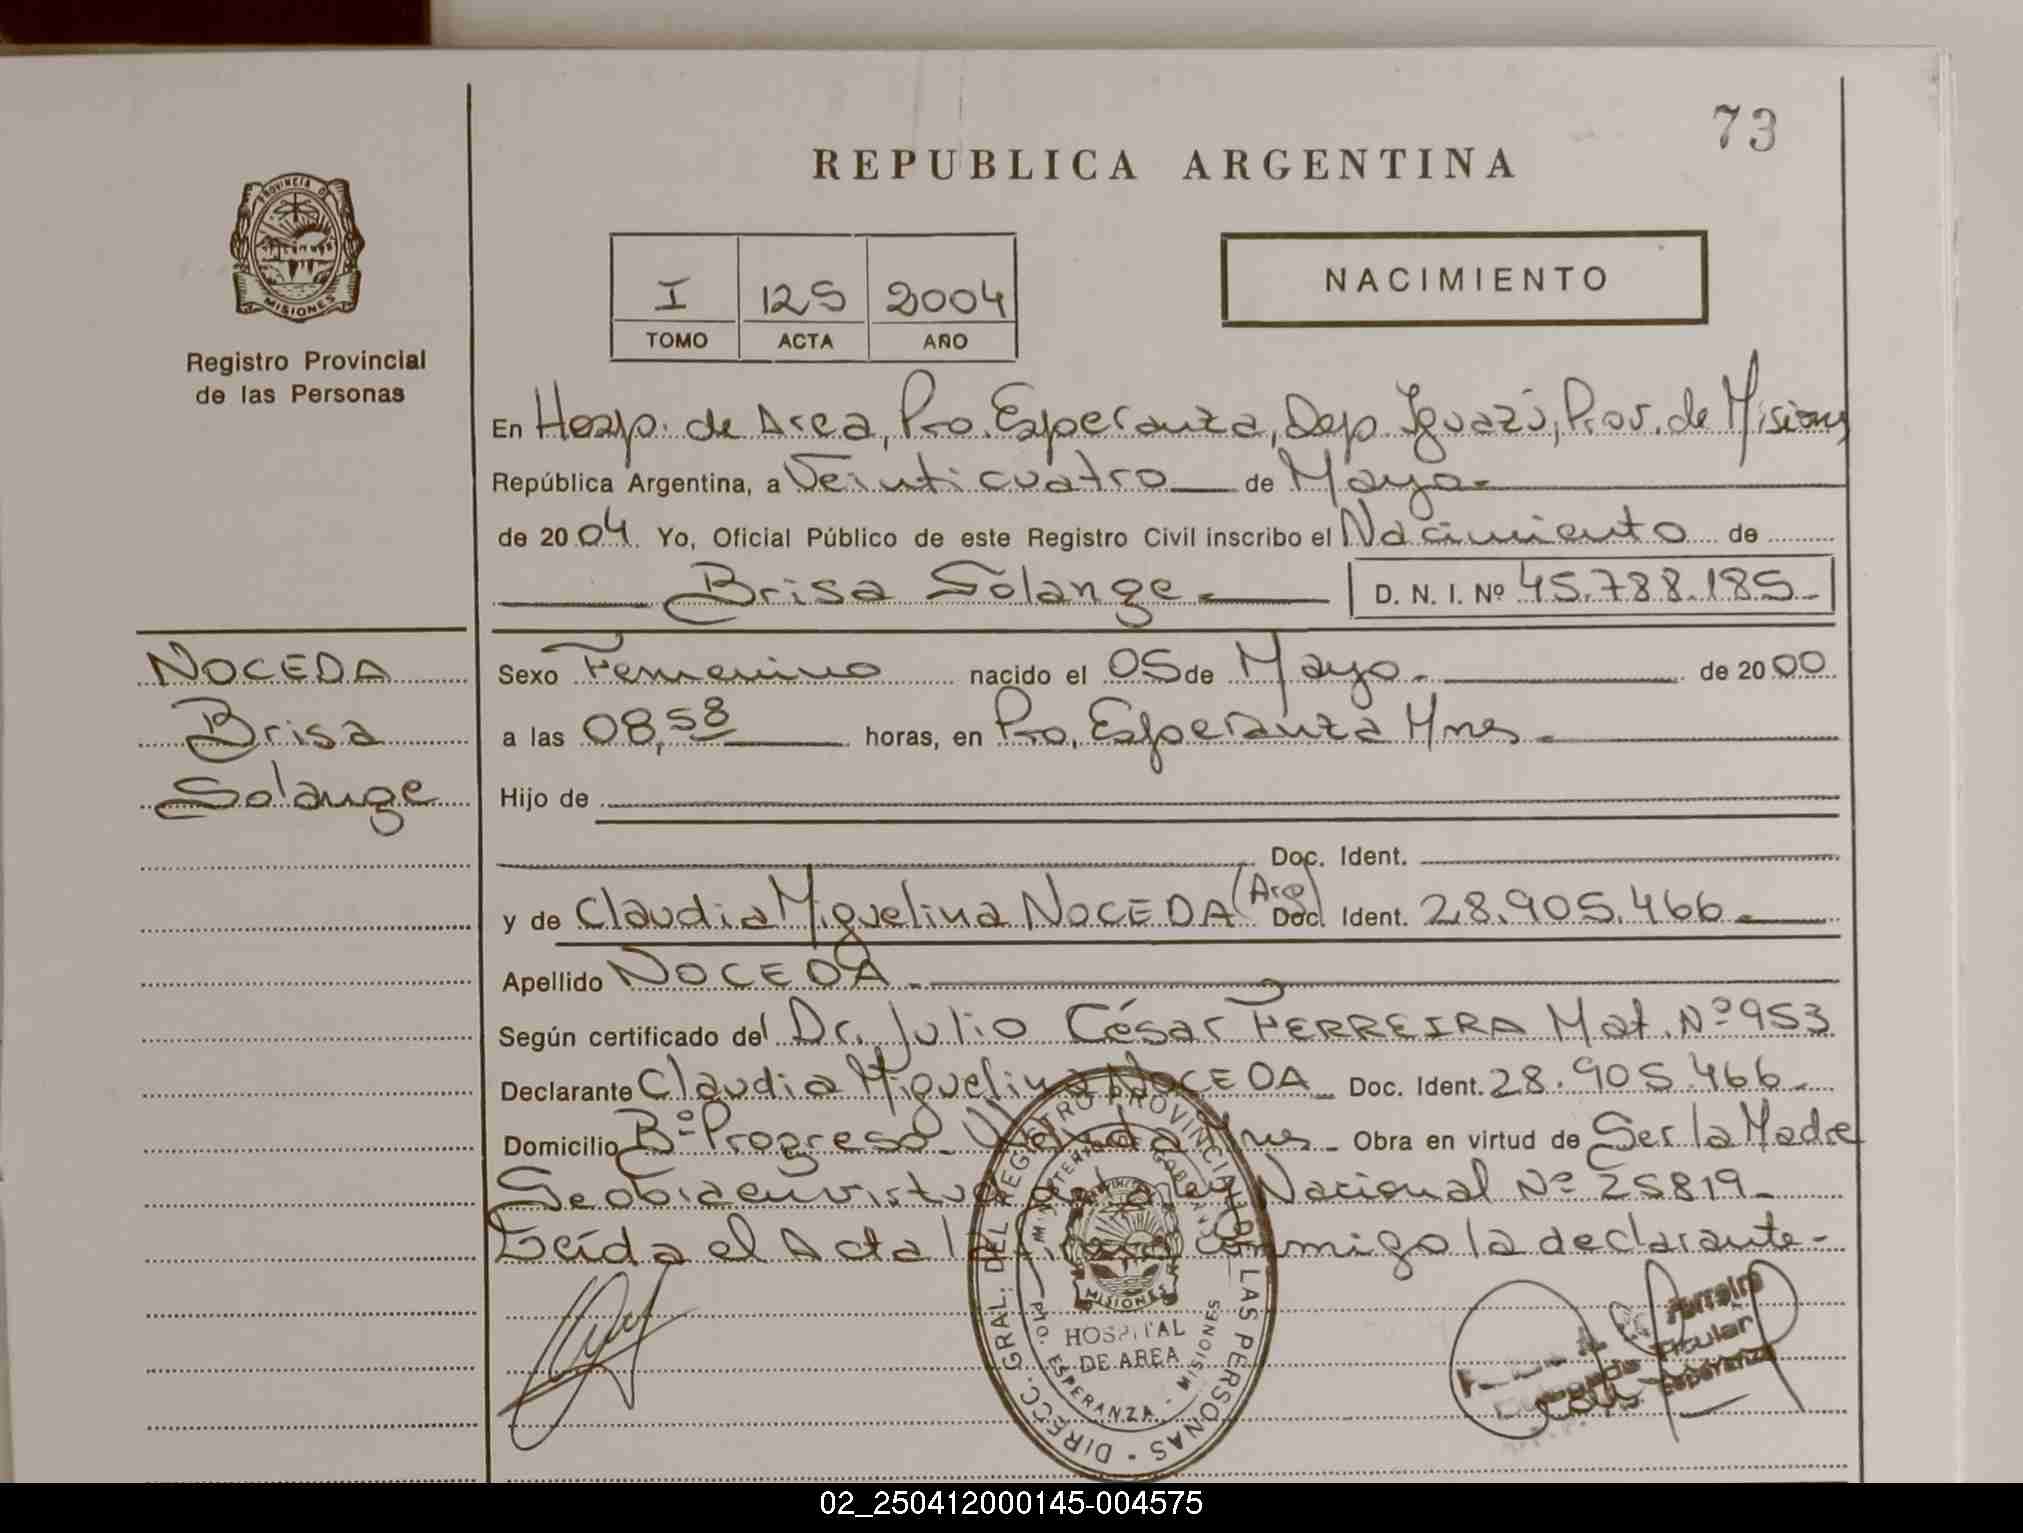 73
REPUBLICA ARGENTINA
PROVINCIA DE
MISIONES
Registro Provincial
de las Personas
I 125 2004
TOMO ACTA AÑO
NACIMIENTO
En Hosp. de Area, Pto. Esperanza, Dep. Iguazú, Prov. de Misiones
República Argentina, a Veinticuatro de Mayo.
de 2004. Yo, Oficial Público de este Registro Civil inscribo el Nacimiento de
Brisa Solange. D. N. I. Nº 45.788.185.
NOCEDA
Brisa
Solange
Sexo Femenino nacido el 05 de Mayo. de 2000
a las 08,58 horas, en Pto. Esperanza Mnes.
Hijo de
Doc. Ident.
y de Claudia Miguelina NOCEDA (Arg) Doc. Ident. 28.905.466.
Apellido NOCEDA.
Según certificado del Dr. Julio César FERREIRA Mat. Nº 953
Declarante Claudia Miguelina NOCEDA Doc. Ident. 28.905.466.
Domicilio Bº Progreso Wanda Mnes. Obra en virtud de Ser la Madre
Se obra en virtud de la ley Nacional Nº 25819.
Leída el Acta la firma conmigo la declarante.
DIRECC. GRAL. DEL REGISTRO PROVINCIAL DE LAS PERSONAS
MINISTERIO DE GOBIERNO
MISIONES
HOSPITAL
DE AREA
PTO. ESPERANZA - MISIONES
Ferreira
Titular
Esperanza
02_250412000145-004575